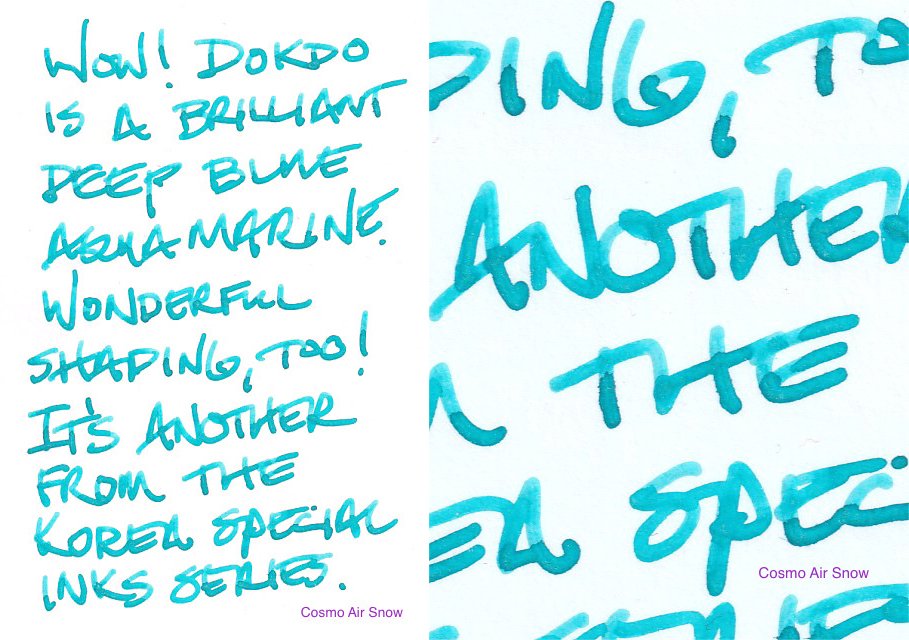 WOW! DOKDO
IS A BRILLIANT
DEEP BLUE
AQUAMARINE.
WONDERFUL
SHADING, TOO!
IT'S ANOTHER
FROM THE
KOREA SPECIAL
INKS SERIES.
Cosmo Air Snow
DING, TO
ANOTHER
M THE
EA SPECI
Cosmo Air Snow